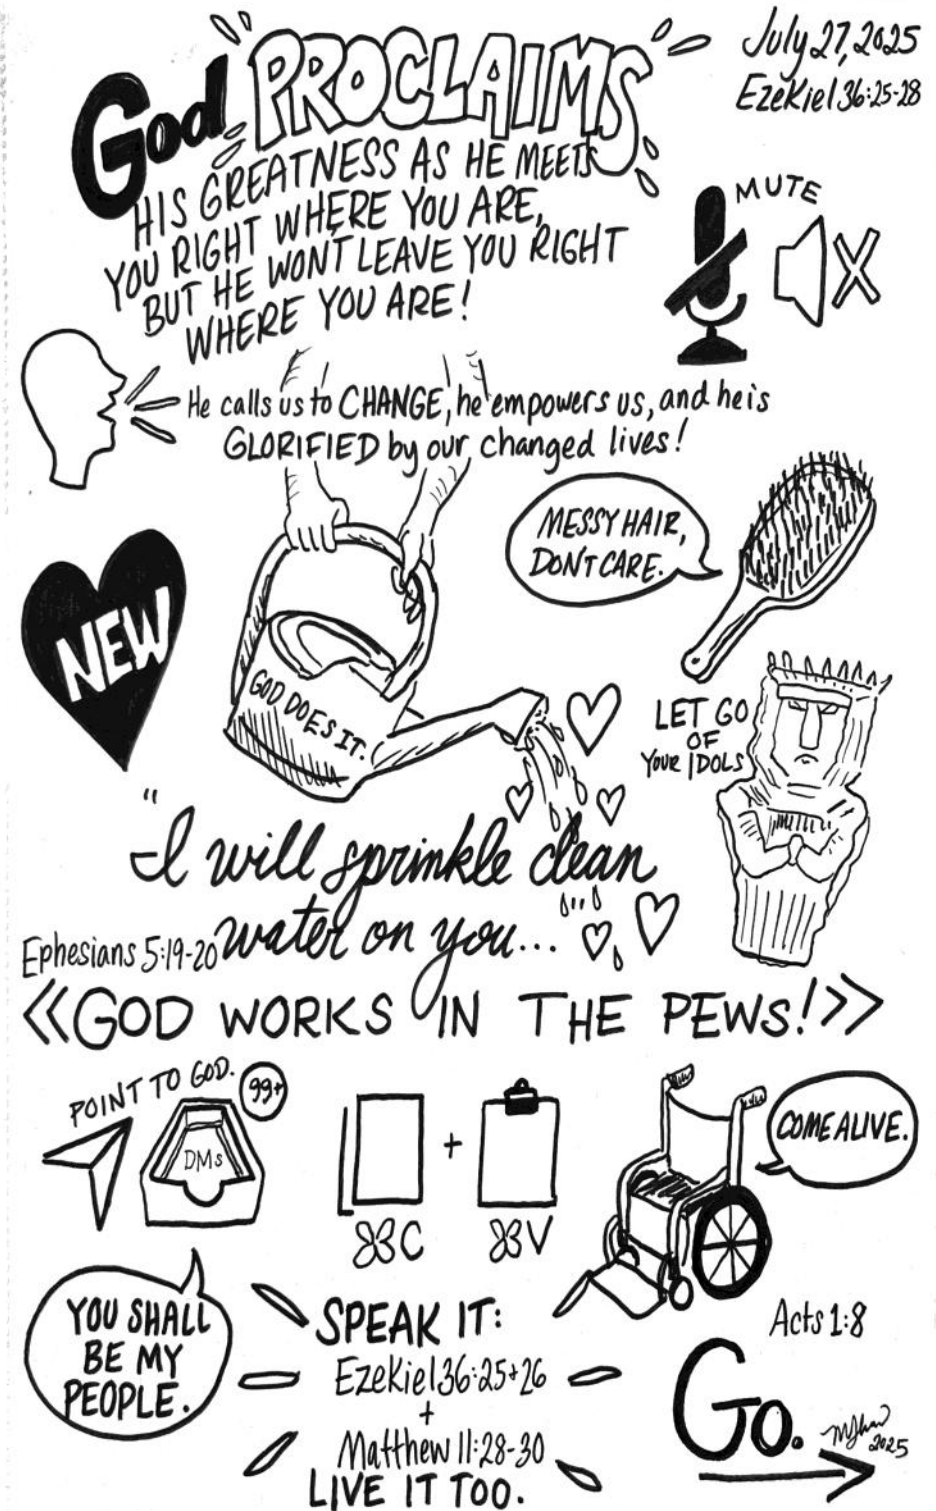 God PROCLAIMS
HIS GREATNESS AS HE MEETS
YOU RIGHT WHERE YOU ARE,
BUT HE WON'T LEAVE YOU RIGHT
WHERE YOU ARE!
July 27, 2025
Ezekiel 36:25-28
MUTE
He calls us to CHANGE, he empowers us, and he is
GLORIFIED by our changed lives!
MESSY HAIR,
DON'T CARE.
NEW
GOD DOES IT.
LET GO
OF
YOUR IDOLS
"I will sprinkle clean
water on you..."
Ephesians 5:19-20
<<GOD WORKS IN THE PEWS!>>
POINT TO GOD.
99+
DMs
+
⌘C
⌘V
COME ALIVE.
YOU SHALL
BE MY
PEOPLE.
SPEAK IT:
Ezekiel 36:25+26
+
Matthew 11:28-30
LIVE IT TOO.
Acts 1:8
GO.
2025